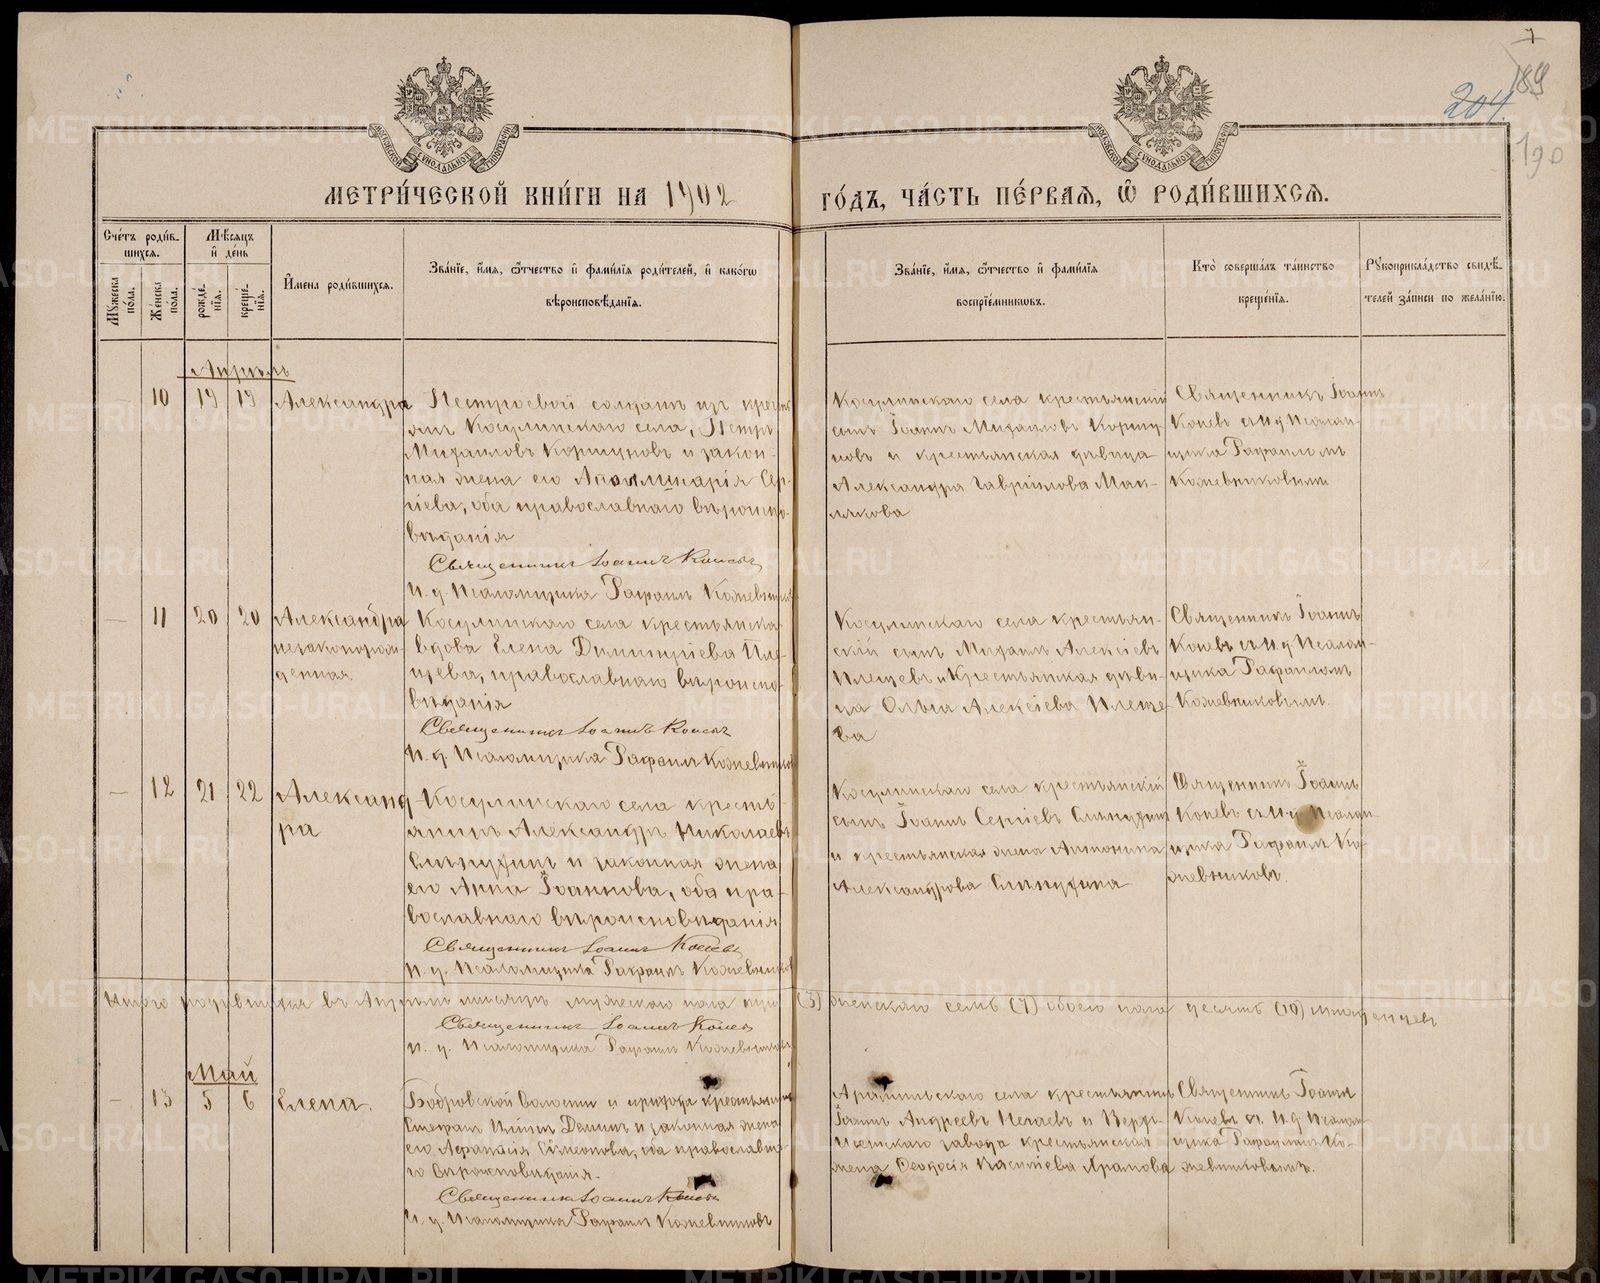 7
189
204.
190
МОСКОВСКОЙ СѴНОДАЛЬНОЙ ТИПОГРАФІИ
МОСКОВСКОЙ СѴНОДАЛЬНОЙ ТИПОГРАФІИ
МЕТРИ́ЧЕСКОЙ КНИ́ГИ НА 1902 ГО́ДЪ, ЧА́СТЬ ПЕ́РВАЯ, Ѡ҆ РОДИ́ВШИХСЯ.
Сче́тъ роди́в-
шихся.
Мꙋжеска по́ла.
Же́нска по́ла.
Мѣ́сяцъ
и҆ де́нь
рожде́-
нїя.
креще́-
нїя.
И҆мена роди́вшихся.
Зва́нїе, и҆́мя, ѻ҆́тчество и҆ фами́лїя роди́телей, и҆ како́гѡ
вѣроисповѣ́данїя.
Зва́нїе, и҆́мя, ѻ҆́тчество и҆ фами́лїя
воспрїе́мникѡвъ.
Кто̀ соверша́лъ та́инство
креще́нїя.
Рꙋкоприкла́дство свидѣ́-
телей за́писи по жела́нїю.
Апрѣль
— 10 19 19 Александра
Нестроевой солдатъ изъ кресть-
янъ Косулинскаго села, Петръ
Михаиловъ Коршуновъ и закон-
ная жена его Аполлинарія Сер-
гіева, оба православнаго вѣроиспо-
вѣданія
Священникъ Іоаннъ Коневъ
И. д. Псаломщика Рафаилъ Кожевниковъ
Косулинскаго села крестьянскій
сынъ Іоаннъ Михаиловъ Коршу-
новъ и крестьянская дѣвица
Александра Гаврилова Мак-
лякова
Священникъ Іоаннъ
Коневъ съ И. д. Псалом-
щика Рафаиломъ
Кожевниковымъ
— 11 20 20 Александра
незаконорож-
денная
Косулинскаго села крестьянская
вдова Елена Димитріева Пле-
щева, православнаго вѣроиспо-
вѣданія
Священникъ Іоаннъ Коневъ
И. д. Псаломщика Рафаилъ Кожевниковъ
Косулинскаго села крестьян-
скій сынъ Михаилъ Алексіевъ
Плещевъ и Крестьянская дѣви-
ца Ольга Алексіева Плеще-
ва
Священникъ Іоаннъ
Коневъ съ И. д. Псалом-
щика Рафаиломъ
Кожевниковымъ.
— 12 21 22 Александ-
ра
Косулинскаго села кресть-
янинъ Александръ Николаевъ
и законная жена
его Анна Іоаннова, оба пра-
вославнаго вѣроисповѣданія
Священникъ Іоаннъ Коневъ
И. д. Псаломщика Рафаилъ Кожевниковъ
Косулинскаго села крестьянскій
сынъ Іоаннъ Сергіевъ
и крестьянская жена Антонина
Александрова
Священникъ Іоаннъ
Коневъ съ И. д. Псалом-
щика Рафаилъ Ко-
жевниковъ.
Итого родившихся въ Апрѣлѣ мѣсяцѣ мужескаго пола три (3) женскаго семь (7) обоего пола десять (10) младенцевъ
Священникъ Іоаннъ Коневъ
И. д. Псаломщика Рафаилъ Кожевниковъ
Май
— 13 5 6 Елена.
Бобровской Волости и прихода крестьянинъ
Стефанъ и законная жена
его Афанасія Симеонова, оба православна-
го вѣроисповѣданія.
Священникъ Іоаннъ Коневъ
И. д. Псаломщика Рафаилъ Кожевниковъ
Арамильскаго села крестьянинъ
Іоаннъ Андреевъ и Верх-
Исетскаго завода крестьянская
жена Ѳеодосія Васильева Храмова
Священникъ Іоаннъ
Коневъ съ И. д. Псалом-
щика Рафаиломъ Ко-
жевниковымъ.
METRIKI.GASO-URAL.RU